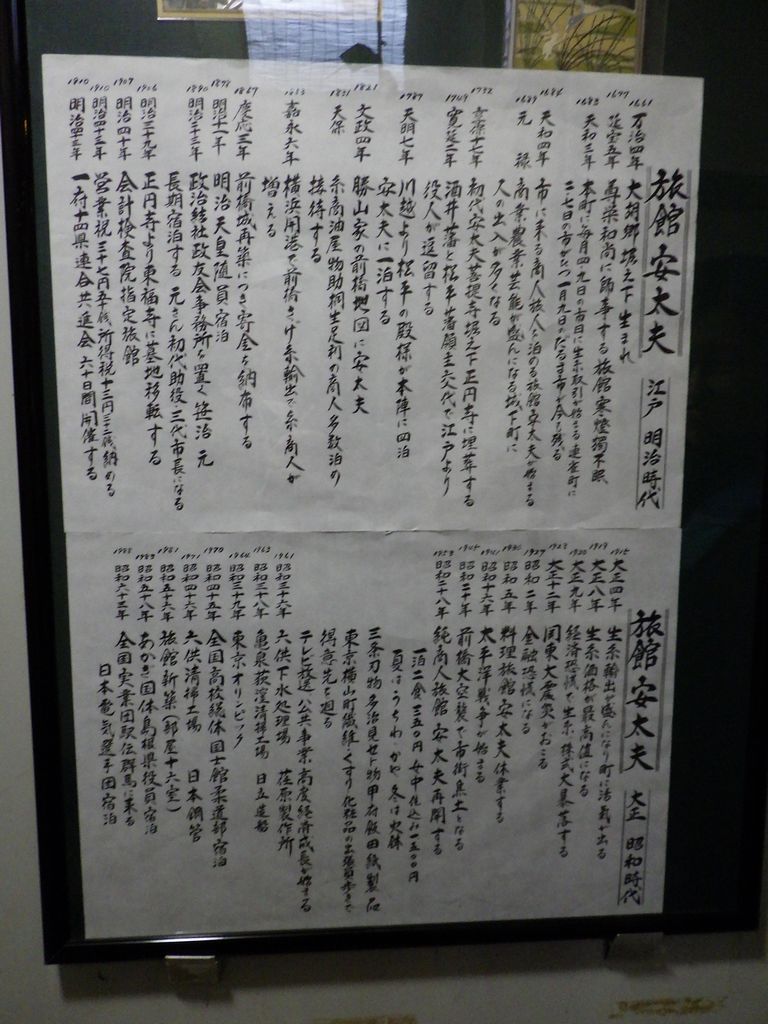 旅館 安太夫 江戸 明治時代
1661 万治四年 大胡郷堀之下生まれ
1677 延宝五年 専栄和尚に師事する 旅館寒燈獨不眠
1683 天和三年 本町に毎月四九日の市日に生糸取引が始まる 連雀町に
二・七日の市がたつ 一月九日のだるま市が今も残る
1684 天和四年 市に来る商人旅人を泊める旅館安太夫が始まる
1689 元禄 商業農業芸能が盛んになる城下町に
人の出入が多くなる
1732 享保十七年 初代安太夫菩提寺堀之下正円寺に埋葬する
1749 寛延二年 酒井藩と松平藩領主交代で江戸より
役人が逗留する
1787 天明七年 川越より松平の殿様が本陣に四泊
安太夫に一泊する
1821 文政四年 勝山家の前橋地図に安太夫
1831 天保 糸商油屋物助桐生足利の商人多数泊の
接待する
1853 嘉永六年 横浜開港で前橋さげ糸輸出で糸商人が
増える
1867 慶応三年 前橋城再築につき寄金を納布する
1878 明治十一年 明治天皇随員宿泊
1890 明治二十三年 政治結社政友会事務所を置く 笹治 元
長期宿泊する 元さん初代助役・三代市長になる
1906 明治三十九年 正円寺より東福寺に墓地移転する
1907 明治四十年 会計検査院指定旅館
1910 明治四十三年 営業税三十七円五十銭 所得税十三円三二銭納める
1910 明治四十三年 一府十四県連合共進会 六十日間開催する
旅館 安太夫 大正 昭和時代
1915 大正四年 生糸輸出が盛んになり町に活気が出る
1919 大正八年 生糸価格が最高値になる
1920 大正九年 経済恐慌で生糸・株式大暴落する
1923 大正十二年 関東大震災がおこる
1927 昭和二年 金融恐慌になる
1930 昭和五年 料理旅館 安太夫休業する
1941 昭和十六年 太平洋戦争が始まる
1945 昭和二十年 前橋大空襲で市街焦土となる
1953 昭和二十八年 純商人旅館 安太夫再開する
一泊二食三五〇円 女中仕込み一五〇〇円
夏はうちわ・かや 冬は火鉢
三条刃物 多治見せと物 甲府飯田紙製品
東京横山町繊維・くすり 化粧品の出張員歩きで
得意先を廻る
テレビ放送 公共事業 高度経済成長が始まる
1961 昭和三十六年 六供下水処理場 荏原製作所
1963 昭和三十八年 亀泉荻窪清掃工場 日立造船
1964 昭和三十九年 東京オリンピック
1970 昭和四十五年 全国高校総体国士館柔道部宿泊
1971 昭和四十六年 六供清掃工場 日本鋼管
1981 昭和五十六年 旅館新築(部屋十六室)
1983 昭和五十八年 あかぎ国体島根県役員宿泊
1988 昭和六十三年 全国実業団駅伝群馬に来る
日本電気選手団宿泊